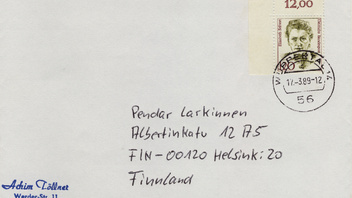 12,00
WUPPERTAL 14
17.-3.89-12
56
Pendar Larkinnen
Albertinkatu 12 A5
FIN-00120 Helsinki 20
Finnland
Achim Töllner
Werder-Str. 11